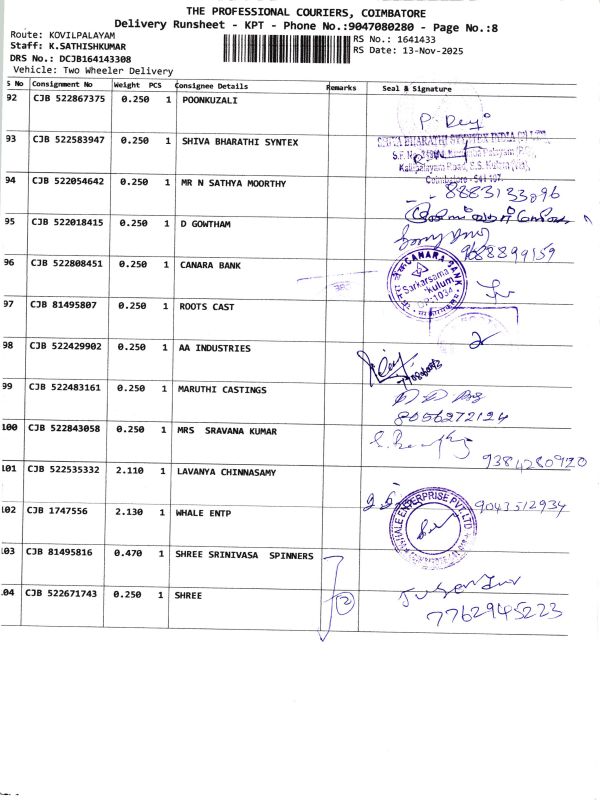 THE PROFESSIONAL COURIERS, COIMBATORE
Delivery Runsheet - KPT - Phone No.:9047080280 - Page No.:8
Route: KOVILPALAYAM
RS No.: 1641433
Staff: K.SATHISHKUMAR
RS Date: 13-Nov-2025
DRS No.: DCJB164143308
Vehicle: Two Wheeler Delivery
S No Consignment No Weight PCS Consignee Details Remarks Seal & Signature
92 CJB 522867375 0.250 1 POONKUZALI
93 CJB 522583947 0.250 1 SHIVA BHARATHI SYNTEX
94 CJB 522054642 0.250 1 MR N SATHYA MOORTHY
Coimbatore - 641 107.
8883133096
95 CJB 522018415 0.250 1 D GOWTHAM
9688899159
96 CJB 522808451 0.250 1 CANARA BANK
CANARA BANK
Sarkarsama
kulum
DP-1034
97 CJB 81495807 0.250 1 ROOTS CAST
98 CJB 522429902 0.250 1 AA INDUSTRIES
99 CJB 522483161 0.250 1 MARUTHI CASTINGS
8056272124
100 CJB 522843058 0.250 1 MRS SRAVANA KUMAR
9384280920
101 CJB 522535332 2.110 1 LAVANYA CHINNASAMY
9043512934
102 CJB 1747556 2.130 1 WHALE ENTP
WHALE ENTERPRISE PVT LTD
103 CJB 81495816 0.470 1 SHREE SRINIVASA SPINNERS
104 CJB 522671743 0.250 1 SHREE
2
7762945223